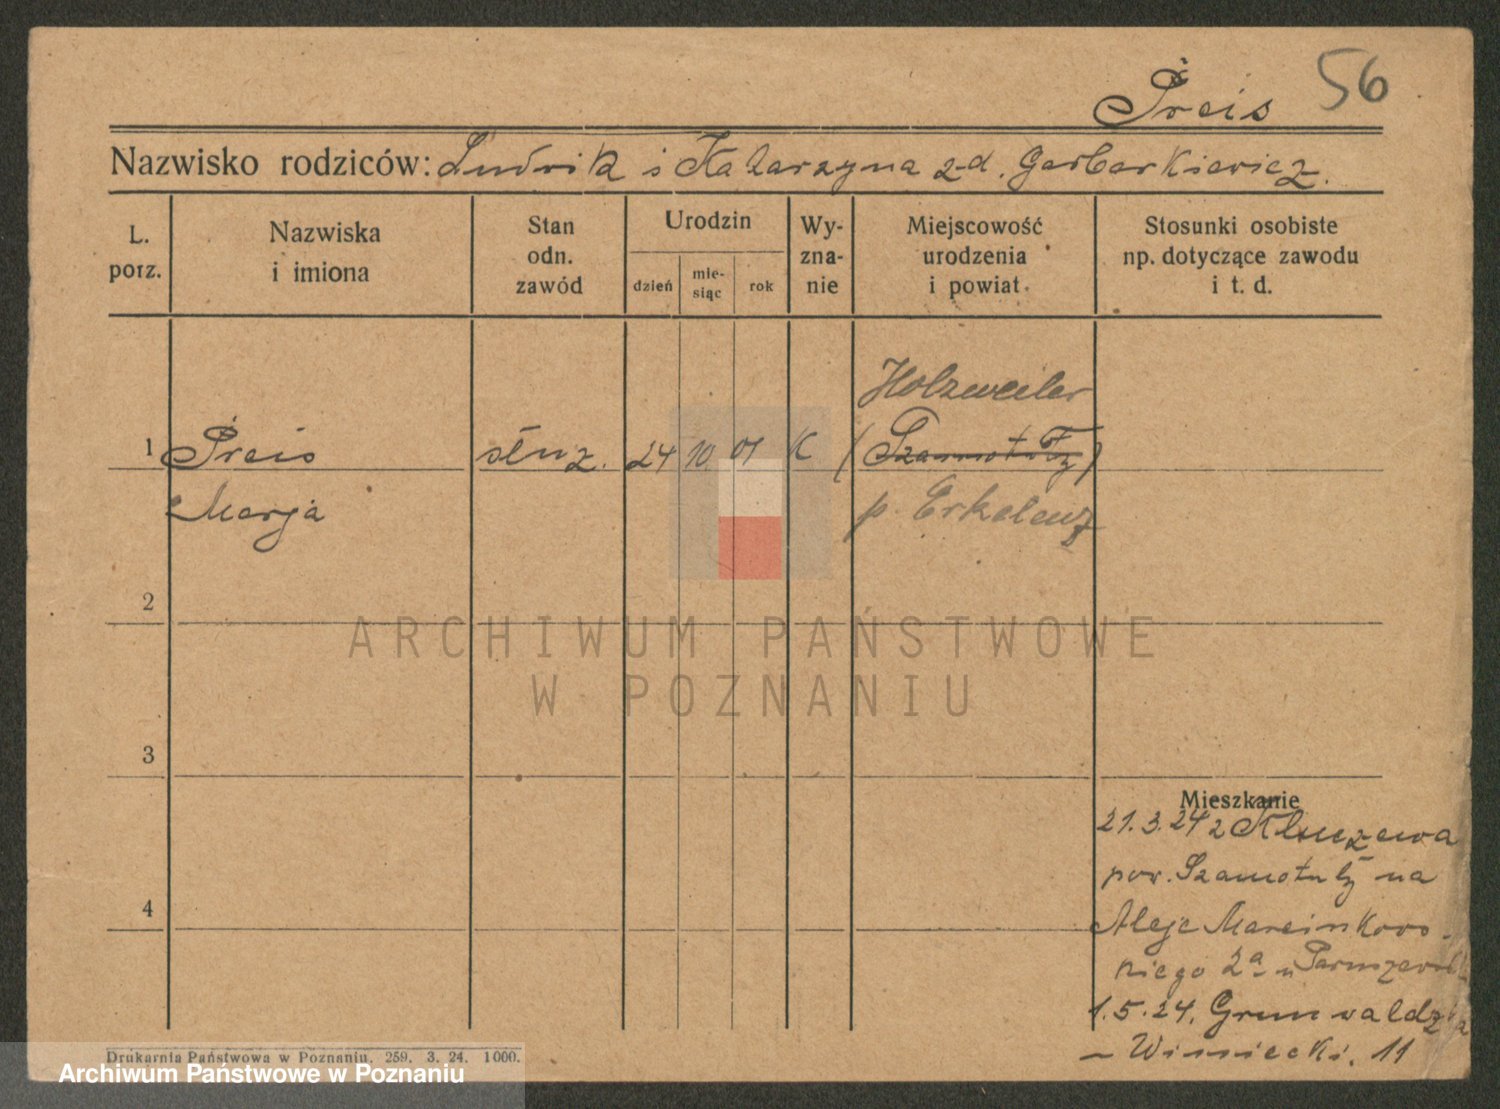 56
Preis
Nazwisko rodziców: Ludwik i Katarzyna z-d. Garbarkiewicz.
L. porz.
Nazwiska i imiona
Stan odn. zawód
Urodzin
dzień
mie-siąc
rok
Wy-zna-nie
Miejscowość urodzenia i powiat
Stosunki osobiste np. dotyczące zawodu i t. d.
Holzweiler
1 Preis służ. 24 10 01 K (Szamotuły)
Marja p. Erkelenz
2
3
4
Mieszkanie
21.3.24 z Kluczewa
pow. Szamotuły na
Aleje Marcinkows-
kiego 2a u
1.5.24. Grunwaldzka
– Winiecki. 11
Drukarnia Państwowa w Poznaniu. 259. 3. 24. 1000.
ARCHIWUM PAŃSTWOWE
W POZNANIU
Archiwum Państwowe w Poznaniu